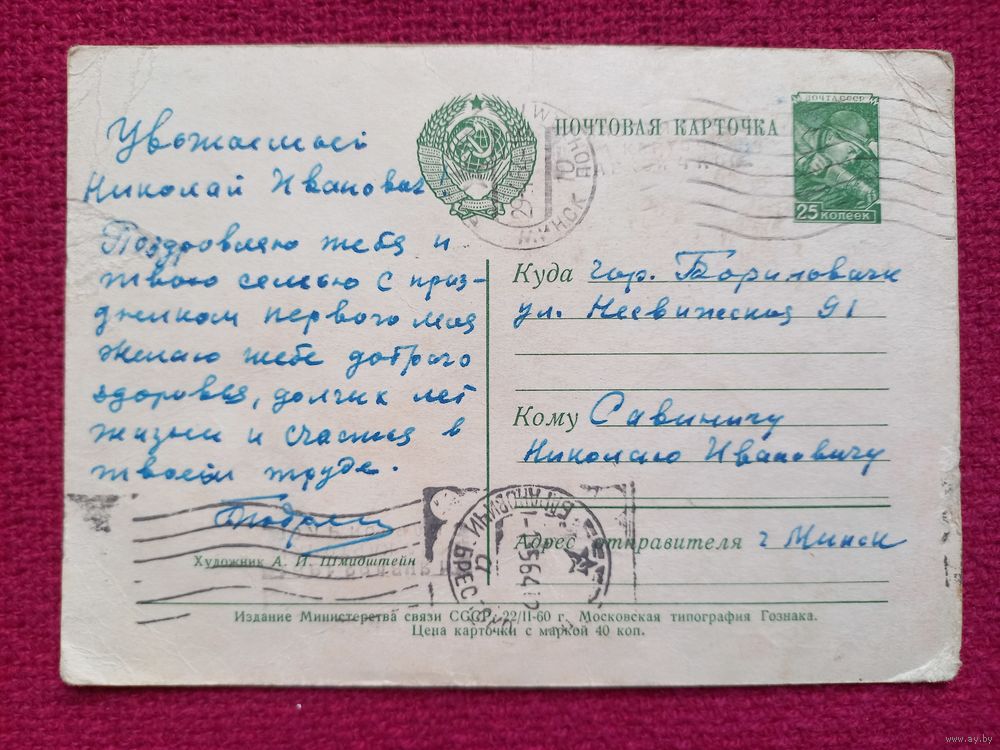 Уважаемый
Николай Иванович!
Поздровляю тебя и
твою семью с праз-
дником первого мая
желаю тебе доброго
здоровья, долгих лет
жизни и счастья в
твоем труде.
Художник А. И. Шмидштейн
ПОЧТОВАЯ КАРТОЧКА
ПОЧТА СССР
25 копеек
МИНСК
Куда гор.
ул. Несвижская 91
Кому Савиничу
Николаю Ивановичу
Адрес отправителя г Минск
Издание Министерства связи СССР. 22/II-60 г. Московская типография Гознака.
Цена карточки с маркой 40 коп.
www.ay.by